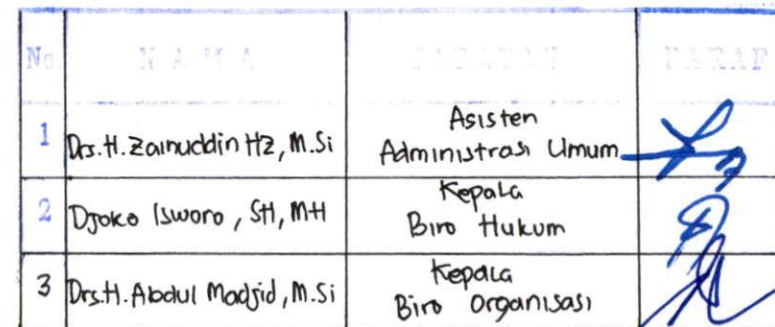 No NAMA JABATAN PARAF
1 Drs. H. Zainuddin HZ, M.Si Asisten
Administrasi Umum
2 Djoko Isworo, SH, MH Kepala
Biro Hukum
3 Drs. H. Abdul Madjid, M.Si Kepala
Biro Organisasi